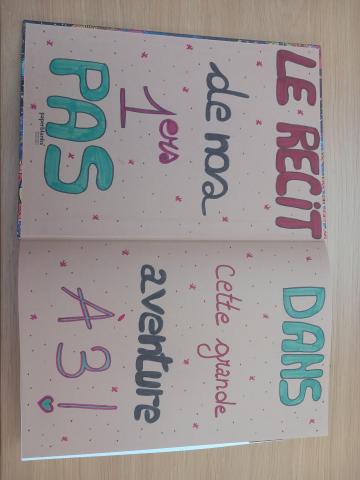 LE RECIT
de nos
1ers
PAS
DANS
cette grande
aventure
À 3 !